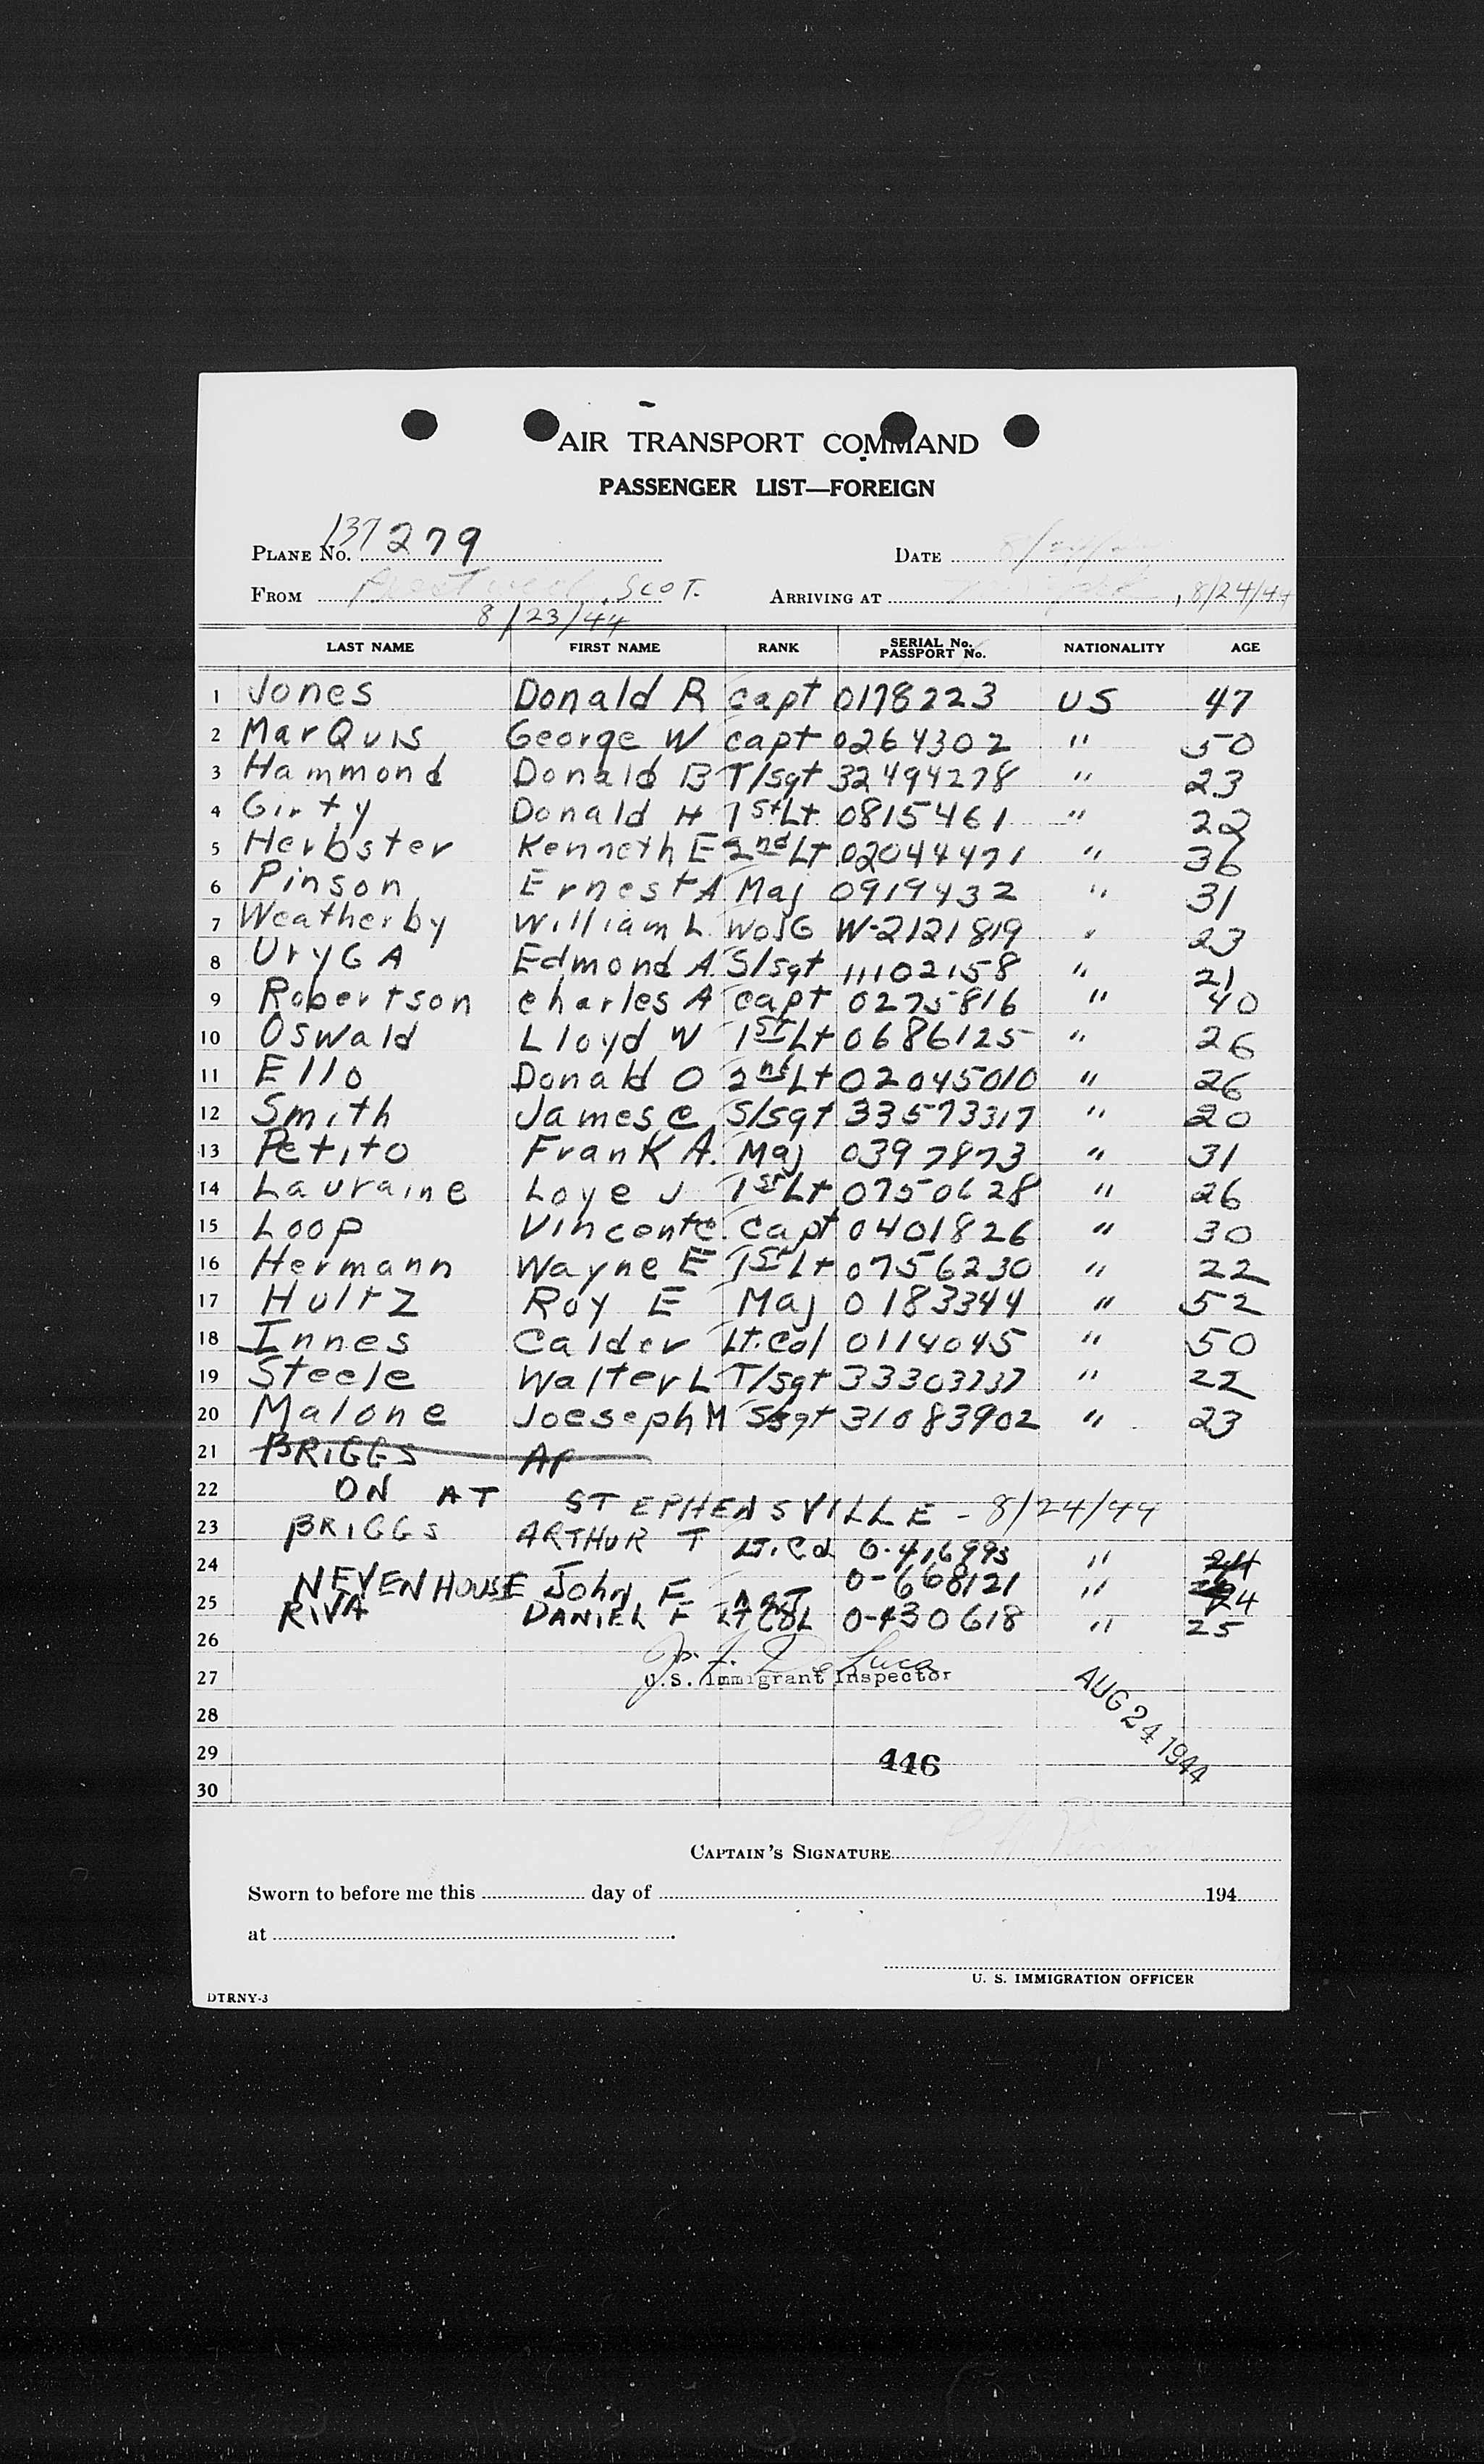 AIR TRANSPORT COMMAND
PASSENGER LIST—FOREIGN
PLANE No. 137279 DATE
FROM SCOT. ARRIVING AT , 8/24/44
8/23/44
LAST NAME FIRST NAME RANK SERIAL No. PASSPORT No. NATIONALITY AGE
1 Jones Donald R capt 0178223 US 47
2 MarQuis George W capt 0264302 " 50
3 Hammond Donald B T/sgt 32494278 " 23
4 Girty Donald H 1st Lt 0815461 " 22
5 Herbster Kenneth E 2nd Lt 02044471 " 36
6 Pinson Ernest A Maj 0919432 " 31
7 Weatherby William L WoJG W-2121819 " 23
8 UryGA Edmond A. S/sgt 11102158 " 21
9 Robertson charles A capt 0275816 " 40
10 Oswald Lloyd W 1st Lt 0686125 " 26
11 Ello Donald O 2nd Lt 02045010 " 26
12 Smith James C S/sgt 33573317 " 20
13 Petito FranK A. Maj 0397873 " 31
14 Lauraine Loye J 1st Lt 0750628 " 26
15 Loop Vincent C. capt 0401826 " 30
16 Hermann Wayne E 1st Lt 0756230 " 22
17 Hultz Roy E Maj 0183344 " 52
18 Innes Calder Lt.Col 0114045 " 50
19 Steele Walter L T/sgt 33303737 " 22
20 Malone Joeseph M S/sgt 31083902 " 23
21 BRIGGS Ar
22 ON AT STEPHENSVILLE - 8/24/44
23 BRIGGS ARTHUR T Lt. Col O-416993 " 24
24 NEVENHOUSE John F O-668121 " 24
25 RIVA DANIEL F Lt COL O-430618 " 25
26
27 U.S. Immigrant Inspector
28 AUG 24 1944
29 446
30
CAPTAIN'S SIGNATURE
Sworn to before me this day of 194
at
U. S. IMMIGRATION OFFICER
DTRNY-3